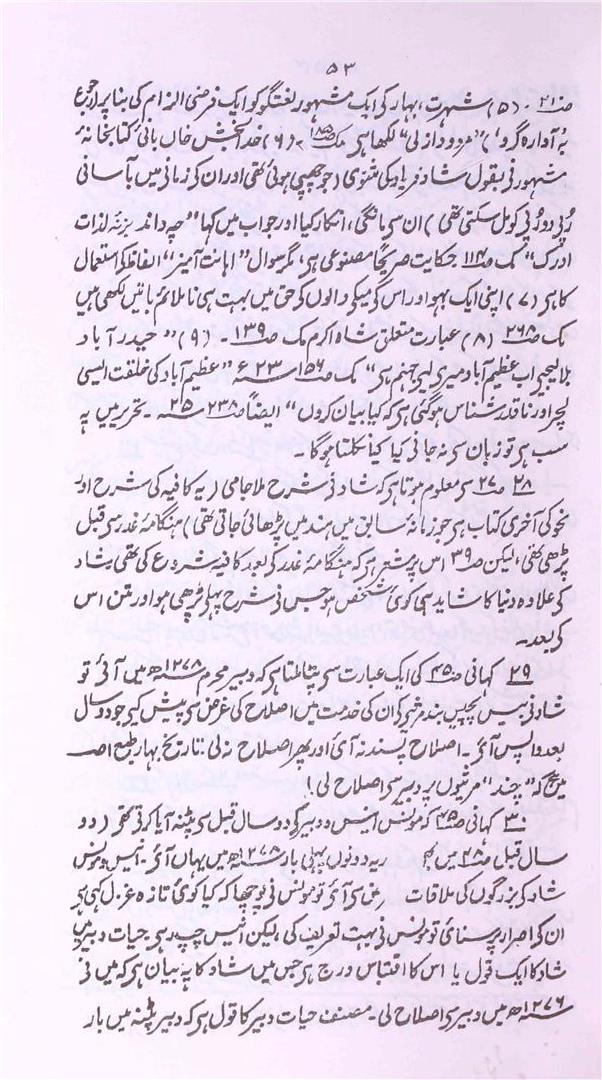 ۵۳
صـ۲۱ ۔ (۵) شہرت، بہار کی ایک مشہور لغتگو کو ایک فرضی الزام کی بنا پر لاجوع
بہٴ آوارہ گرو') "مردود ازلی" لکھا ہی مک صـ۱۸۵ (۶) خدا بخش خاں بانی کتابخانہٴ
مشہور نی بقول شاد فریاد کی مثنوی (جو چھپی ہوئی تھی اور ان کی زمانی میں بآسانی
رُپی دو رُپی کو مل سکتی تھی) ان سی مانگی، انکار کیا اور جواب میں کہا "چہ داند بزنہ لذات
ادرک" مک صـ۱۱۴ حکایت صریحاً مصنوعی ہی، مگر سوال "اہانت آمیز" الفاظ کو استعمال
کا ہی (۷) اپنی ایک بہو اور اس کو میکو والوں کو حق میں بہت ہی ناملائم باتیں لکھی ہیں
مک صـ۲۶۸ (۸) عبارت متعلق شاہ اکرم مک صـ۱۳۹ ۔ (۹) "حیدر آباد
بلا لیجیے اب عظیم آباد میری لیی جہنم ہی" مک صـ۱۵۶ سنہ ۲۳ ء "عظیم آباد کی خلقت ایسی
لچر اور ناقدر شناس ہو گئی ہی کہ کیا بیان کروں" ایضاً صـ۲۳۸ سنہ ۲۵ ۔ تحریریں یہ
سب ہی تو زبان سی نہ جانی کیا کیا نکلتا ہوگا ۔
۲۸ صـ۲۷ سی معلوم ہوتا ہی کہ شاد نی شرح ملا جامی (یہ کافیہ کی شرح اور
نحو کی آخری کتاب ہی جو زمانہٴ سابق میں ہند میں پڑھائی جاتی تھی) ہنگامہٴ غدر سی قبل
پڑھی تھی، لیکن صـ۳۹ اس پر مشعر ہی کہ ہنگامہٴ غدر کی بعد کافیہ شروع کی تھی شاد
کی علاوہ دنیا کا شاید ہی کوئی شخص ہو جس نی شرح پہلی پڑھی ہو اور متن اس
کی بعد ۔
۲۹ کہانی صـ۴۵ کی ایک عبارت سی پتا ملتا ہی کہ دبیر محرم سنہ ۱۲۷۸ھ میں آئی تو
شاد نی بیس پچیس بند مرثیی کو ان کی خدمت میں اصلاح کی غرض سی پیش کیی جو دو سال
بعد واپس آئی ۔ اصلاح پسند نہ آئی اور پھر اصلاح نہ لی؛ تاریخ بہار طبع ا صـ
میں ہی کہ "چند" مرثیوں پر دبیر سی اصلاح لی!
۳۰ کہانی صـ۴۹ کہ مونس انیس و دبیر کو دو سال قبل سی پٹنہ آیا کرتی تھی (دو
سال قبل صـ۲۸ میں ہی) ریہ دونوں پہلی بار سنہ ۱۲۷۸ھ میں یہاں آئی ۔ انیس و مونس
شاد کو بزرگوں کی ملاقات کی آئی تو مونس نی پوچھا کہ کیا کوئی تازہ غزل کہی ہی
ان کو اصرار پر سنائی تو مونس نی بہت تعریف کی، لیکن انیس چپ رہی ۔ حیات دبیر میں
شاد کا ایک قول یا اس کا اقتباس درج ہی جس میں شاد کا یہ بیان ہی کہ میں نی
سنہ ۱۲۷۶ھ میں دبیر سی اصلاح لی ۔ مصنف حیات دبیر کا قول ہی کہ دبیر پٹنہ میں بار